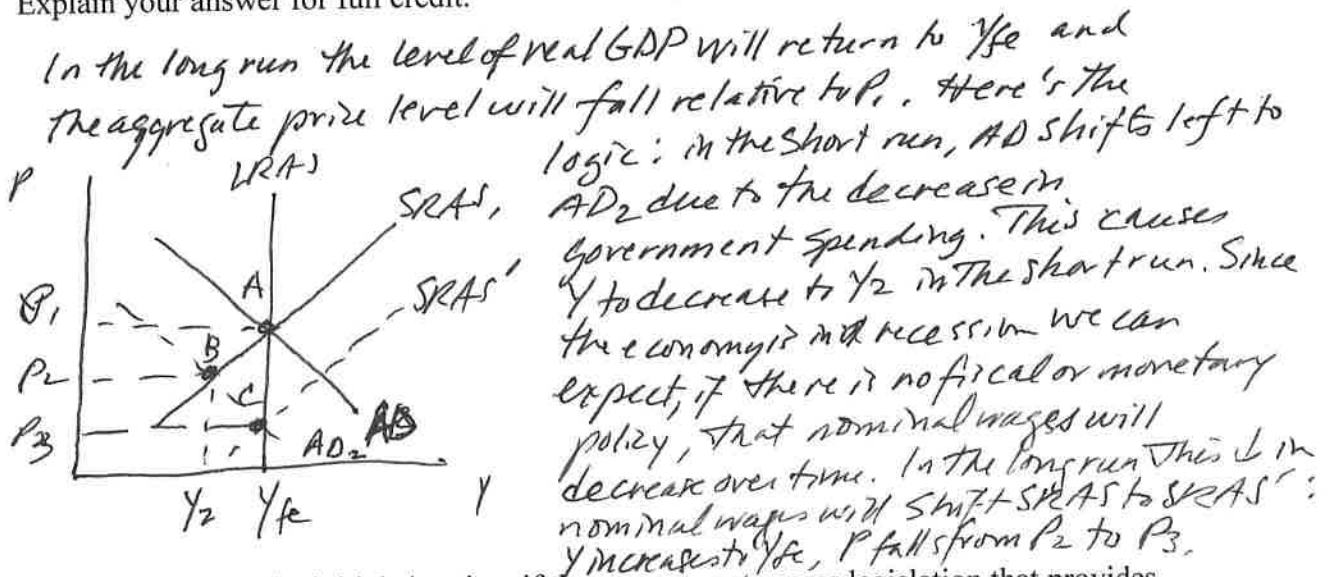 Explain your answer for full credit.
In the long run the level of real GDP will return to Yfe and
the aggregate price level will fall relative to P1. Here's the
logic: in the short run, AD shifts left to
AD2 due to the decrease in
government spending. This causes
Y to decrease to Y2 in the short run. Since
the economy is in a recession we can
expect, if there is no fiscal or monetary
policy, that nominal wages will
decrease over time. In the long run this ↓ in
nominal wages will shift SRAS to SRAS':
Y increases to Yfe, P falls from P2 to P3.
P
LRAS
SRAS,
SRAS'
A
P1
B
P2
C
P3
AD2
AD
Y2 Yfe
Y
legislation that provides